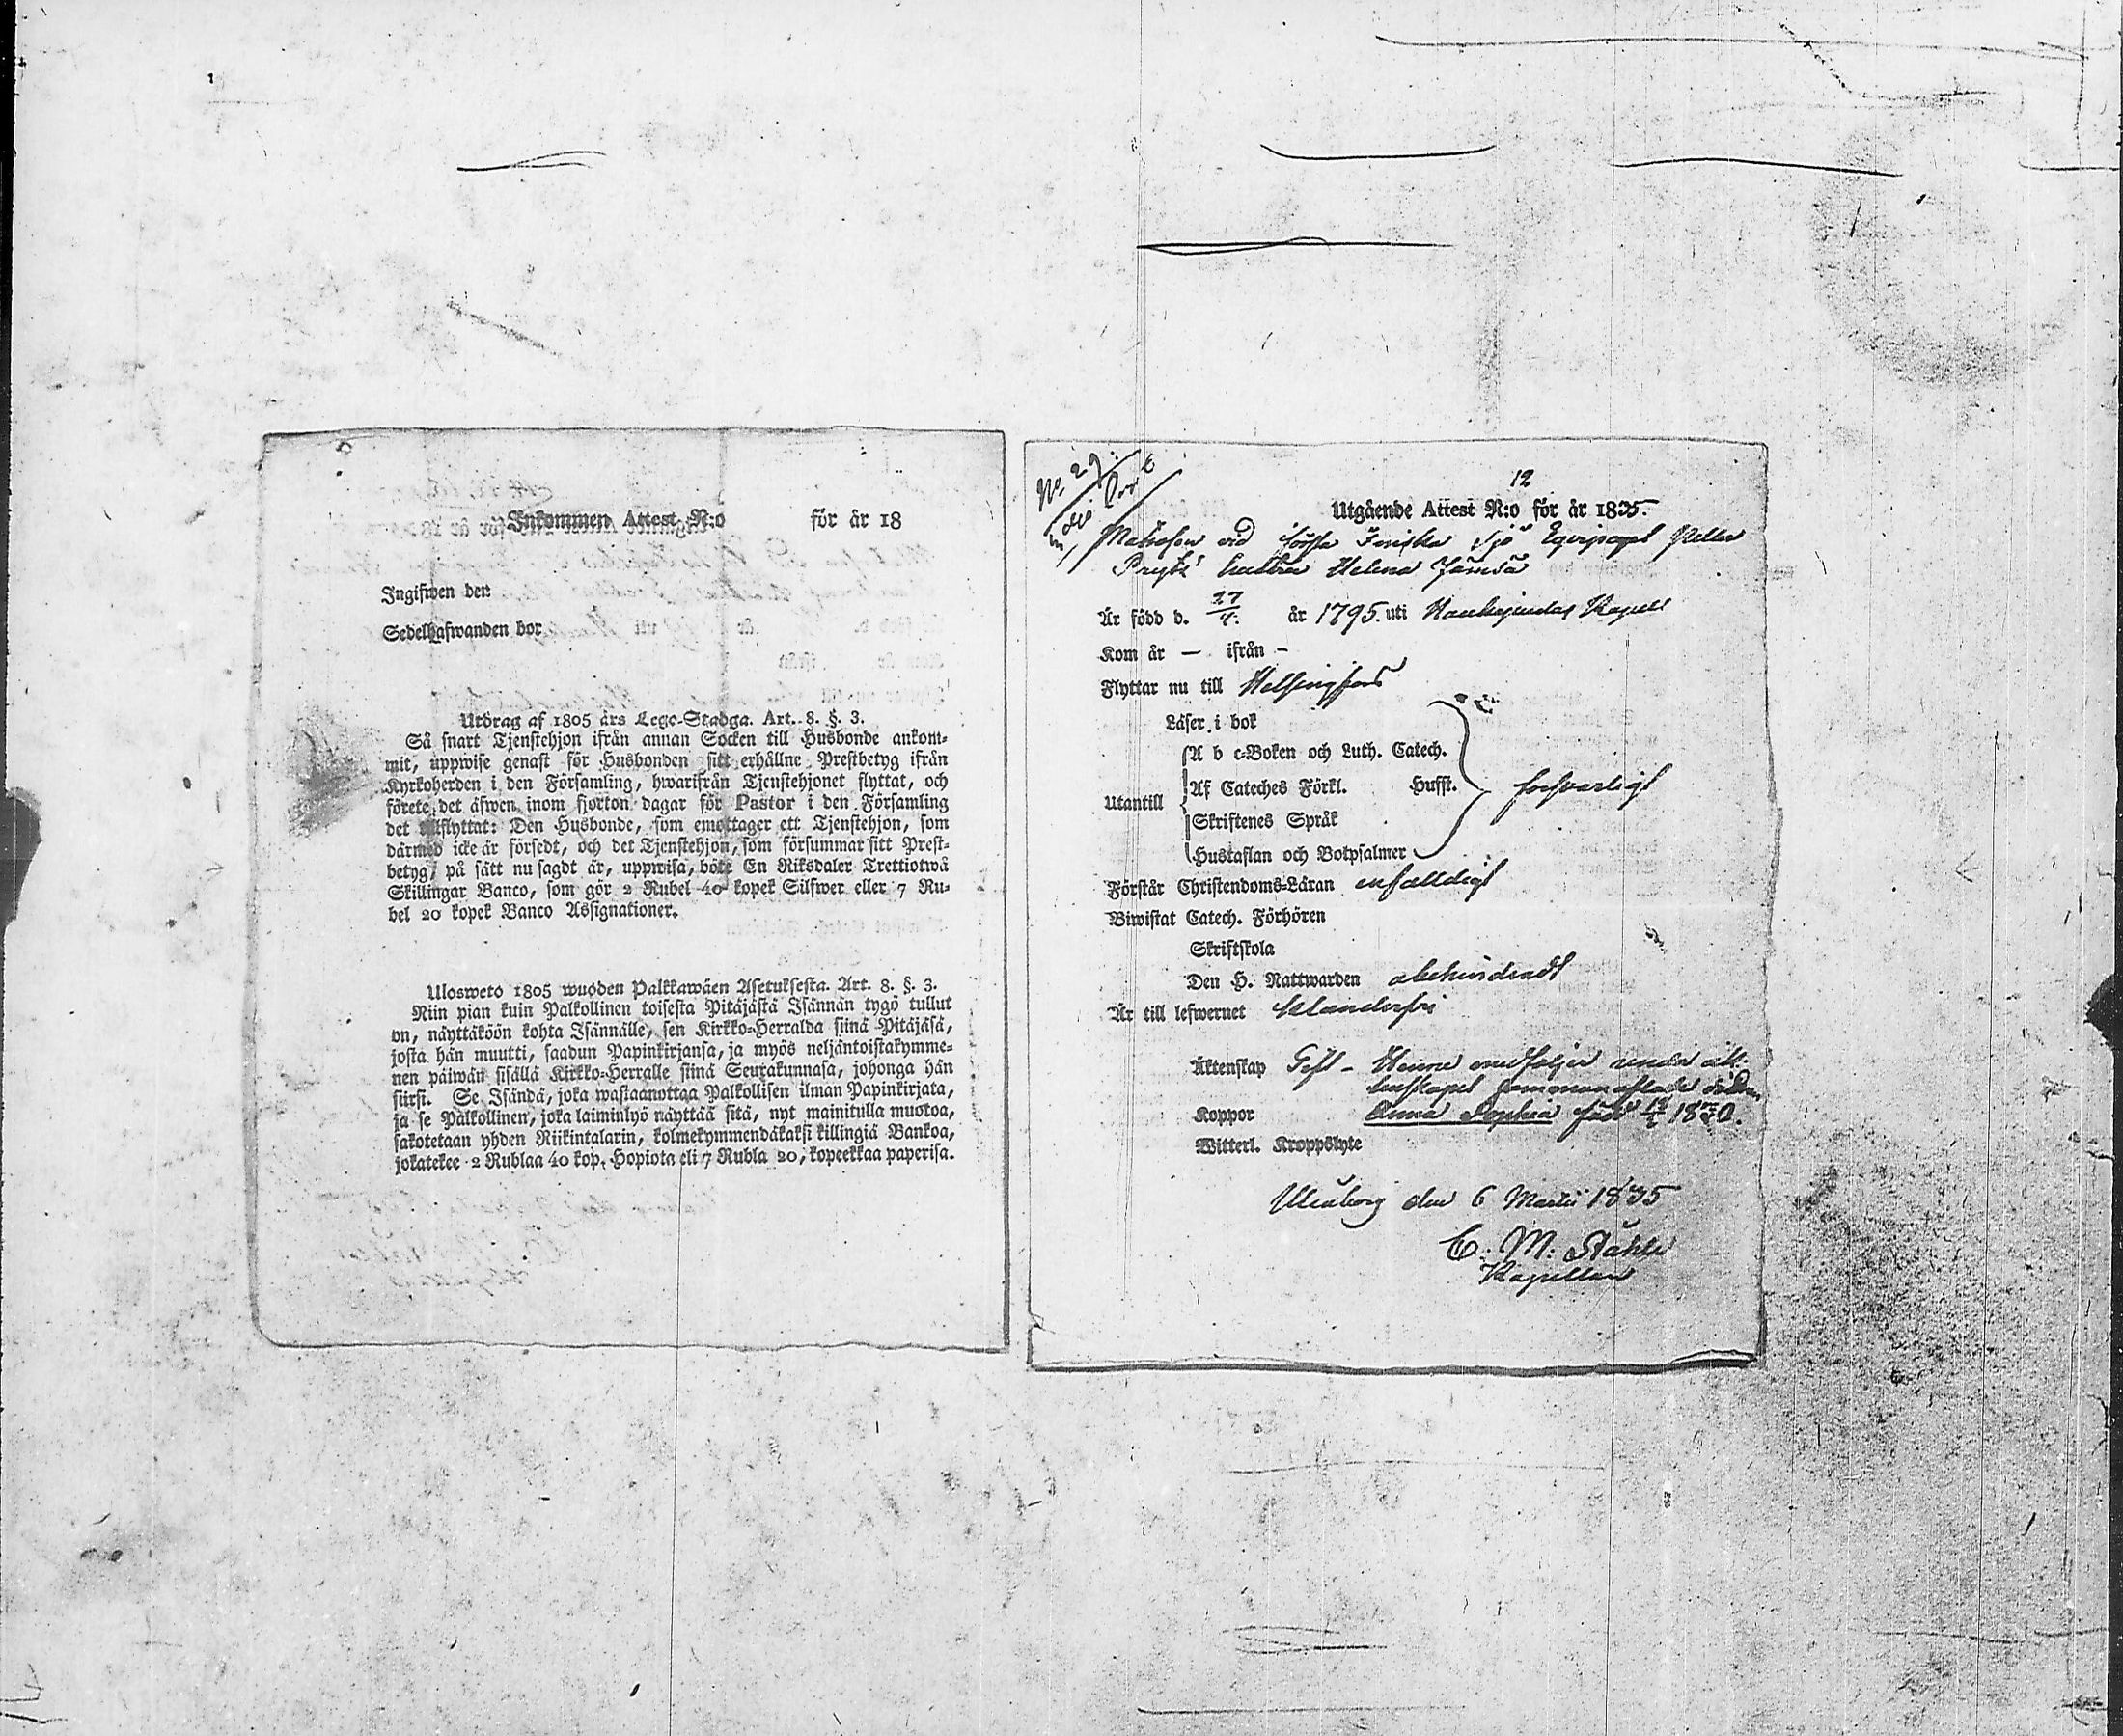 Inkommen Attest N:o för år 18
Ingifwen den
Sedelhafwanden bor
Utdrag af 1805 års Lego-Stadga. Art. 8. §. 3.
Så snart Tjenstehjon ifrån annan Socken till Husbonde ankom-
mit, uppwise genast för Husbonden sitt erhållne Prestbetyg ifrån
Kyrkoherden i den Församling, hwarifrån Tjenstehjonet flyttat, och
förete det äfwen inom fjorton dagar för Pastor i den Församling
det tillflyttat: Den Husbonde, som emottager ett Tjenstehjon, som
därmed icke är försedt, och det Tjenstehjon, som försummar sitt Prest-
betyg, på sätt nu sagdt är, uppwisa, böte En Riksdaler Trettiotwå
Skillingar Banco, som gör 2 Rubel 40 kopek Silfwer eller 7 Ru-
bel 20 kopek Banco Assignationer.
Ulosweto 1805 wuoden Palkkawäen Asetuksesta. Art. 8. §. 3.
Niin pian kuin Palkollinen toisesta Pitäjästä Isännän tygö tullut
on, näyttäköön kohta Isännälle, sen Kirkko-Herralda siinä Pitäjäsä,
josta hän muutti, saadun Papinkirjansa, ja myös neljäntoistakymme-
nen päiwän sisällä Kirkko-Herralle siinä Seurakunnasa, johonga hän
siirsi. Se Isändä, joka wastaanottaa Palkollisen ilman Papinkirjata,
ja se Palkollinen, joka laiminlyö näyttää sitä, nyt mainitulla muotoa,
sakotetaan yhden Riikintalarin, kolmekymmendäkaksi killingiä Bankoa,
jokatekee 2 Rublaa 40 kop. Hopiota eli 7 Rubla 20, kopeekkaa paperisa.
No 29:
12
Utgående Attest N:o för år 1835.
Matrosen vid första Finska Sjö Equipaget Petter
hustru Helena Jämsä
Är född d. 27/4. år 1795. uti Haukipudas Kapell
Kom år — ifrån –
Flyttar nu till Helsingfors
Läser i bok
A b c-Boken och Luth. Catech.
Utantill Af Cateches Förkl. Husst. försvarligt
Skriftenes Språk
Hustaflan och Botpsalmer
Förstår Christendoms-Läran enfalldigt
Biwistat Catech. Förhören
Skriftskola
Den H. Nattwarden obehindradt
Är till lefwernet Klanderfri
Äktenskap Gift – Henne medföljer under äk-
tenskapet sammanaflade
Koppor Anna Sophia född 1830.
Witterl. Kroppslyte
Uleåborg den 6 Martii 1835
C: M: Ståhle
Kapellan